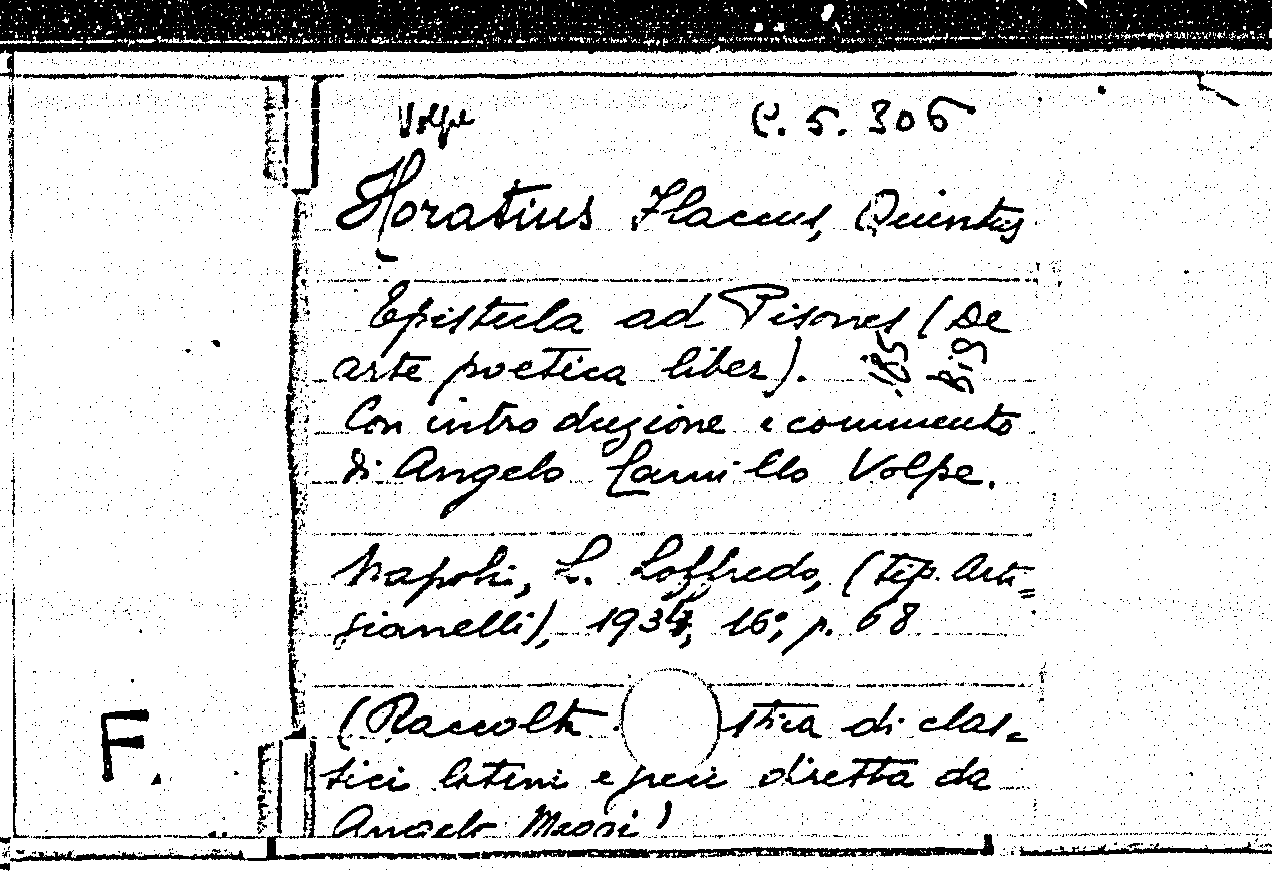 Volpe C. 5. 306
Horatius Flaccus, Quintus
Epistula ad Pisones (De
arte poetica liber).
Con introduzione e commento
di Angelo Camillo Volpe.
Napoli, L. Loffredo, (tip. Arti=
gianelli), 1934, 16°, p. 68
(Raccolta stica di clas=
sici latini e greci diretta da
Angelo
F.